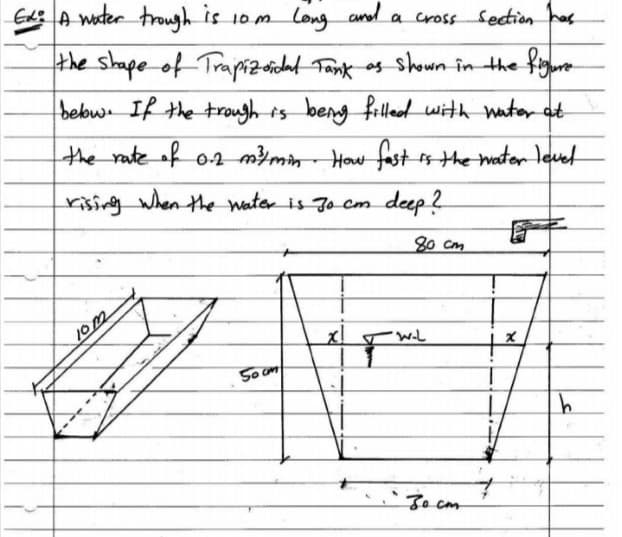 Ex: A water trough is 10 m long and a cross section has
the shape of Trapizoidal Tank as shown in the figure
below. If the trough is being filled with water at
the rate of 0.2 m³/min. How fast is the water level
rising when the water is 30 cm deep?
80 cm
10 m
x
W.L
x
50 cm
h
30 cm